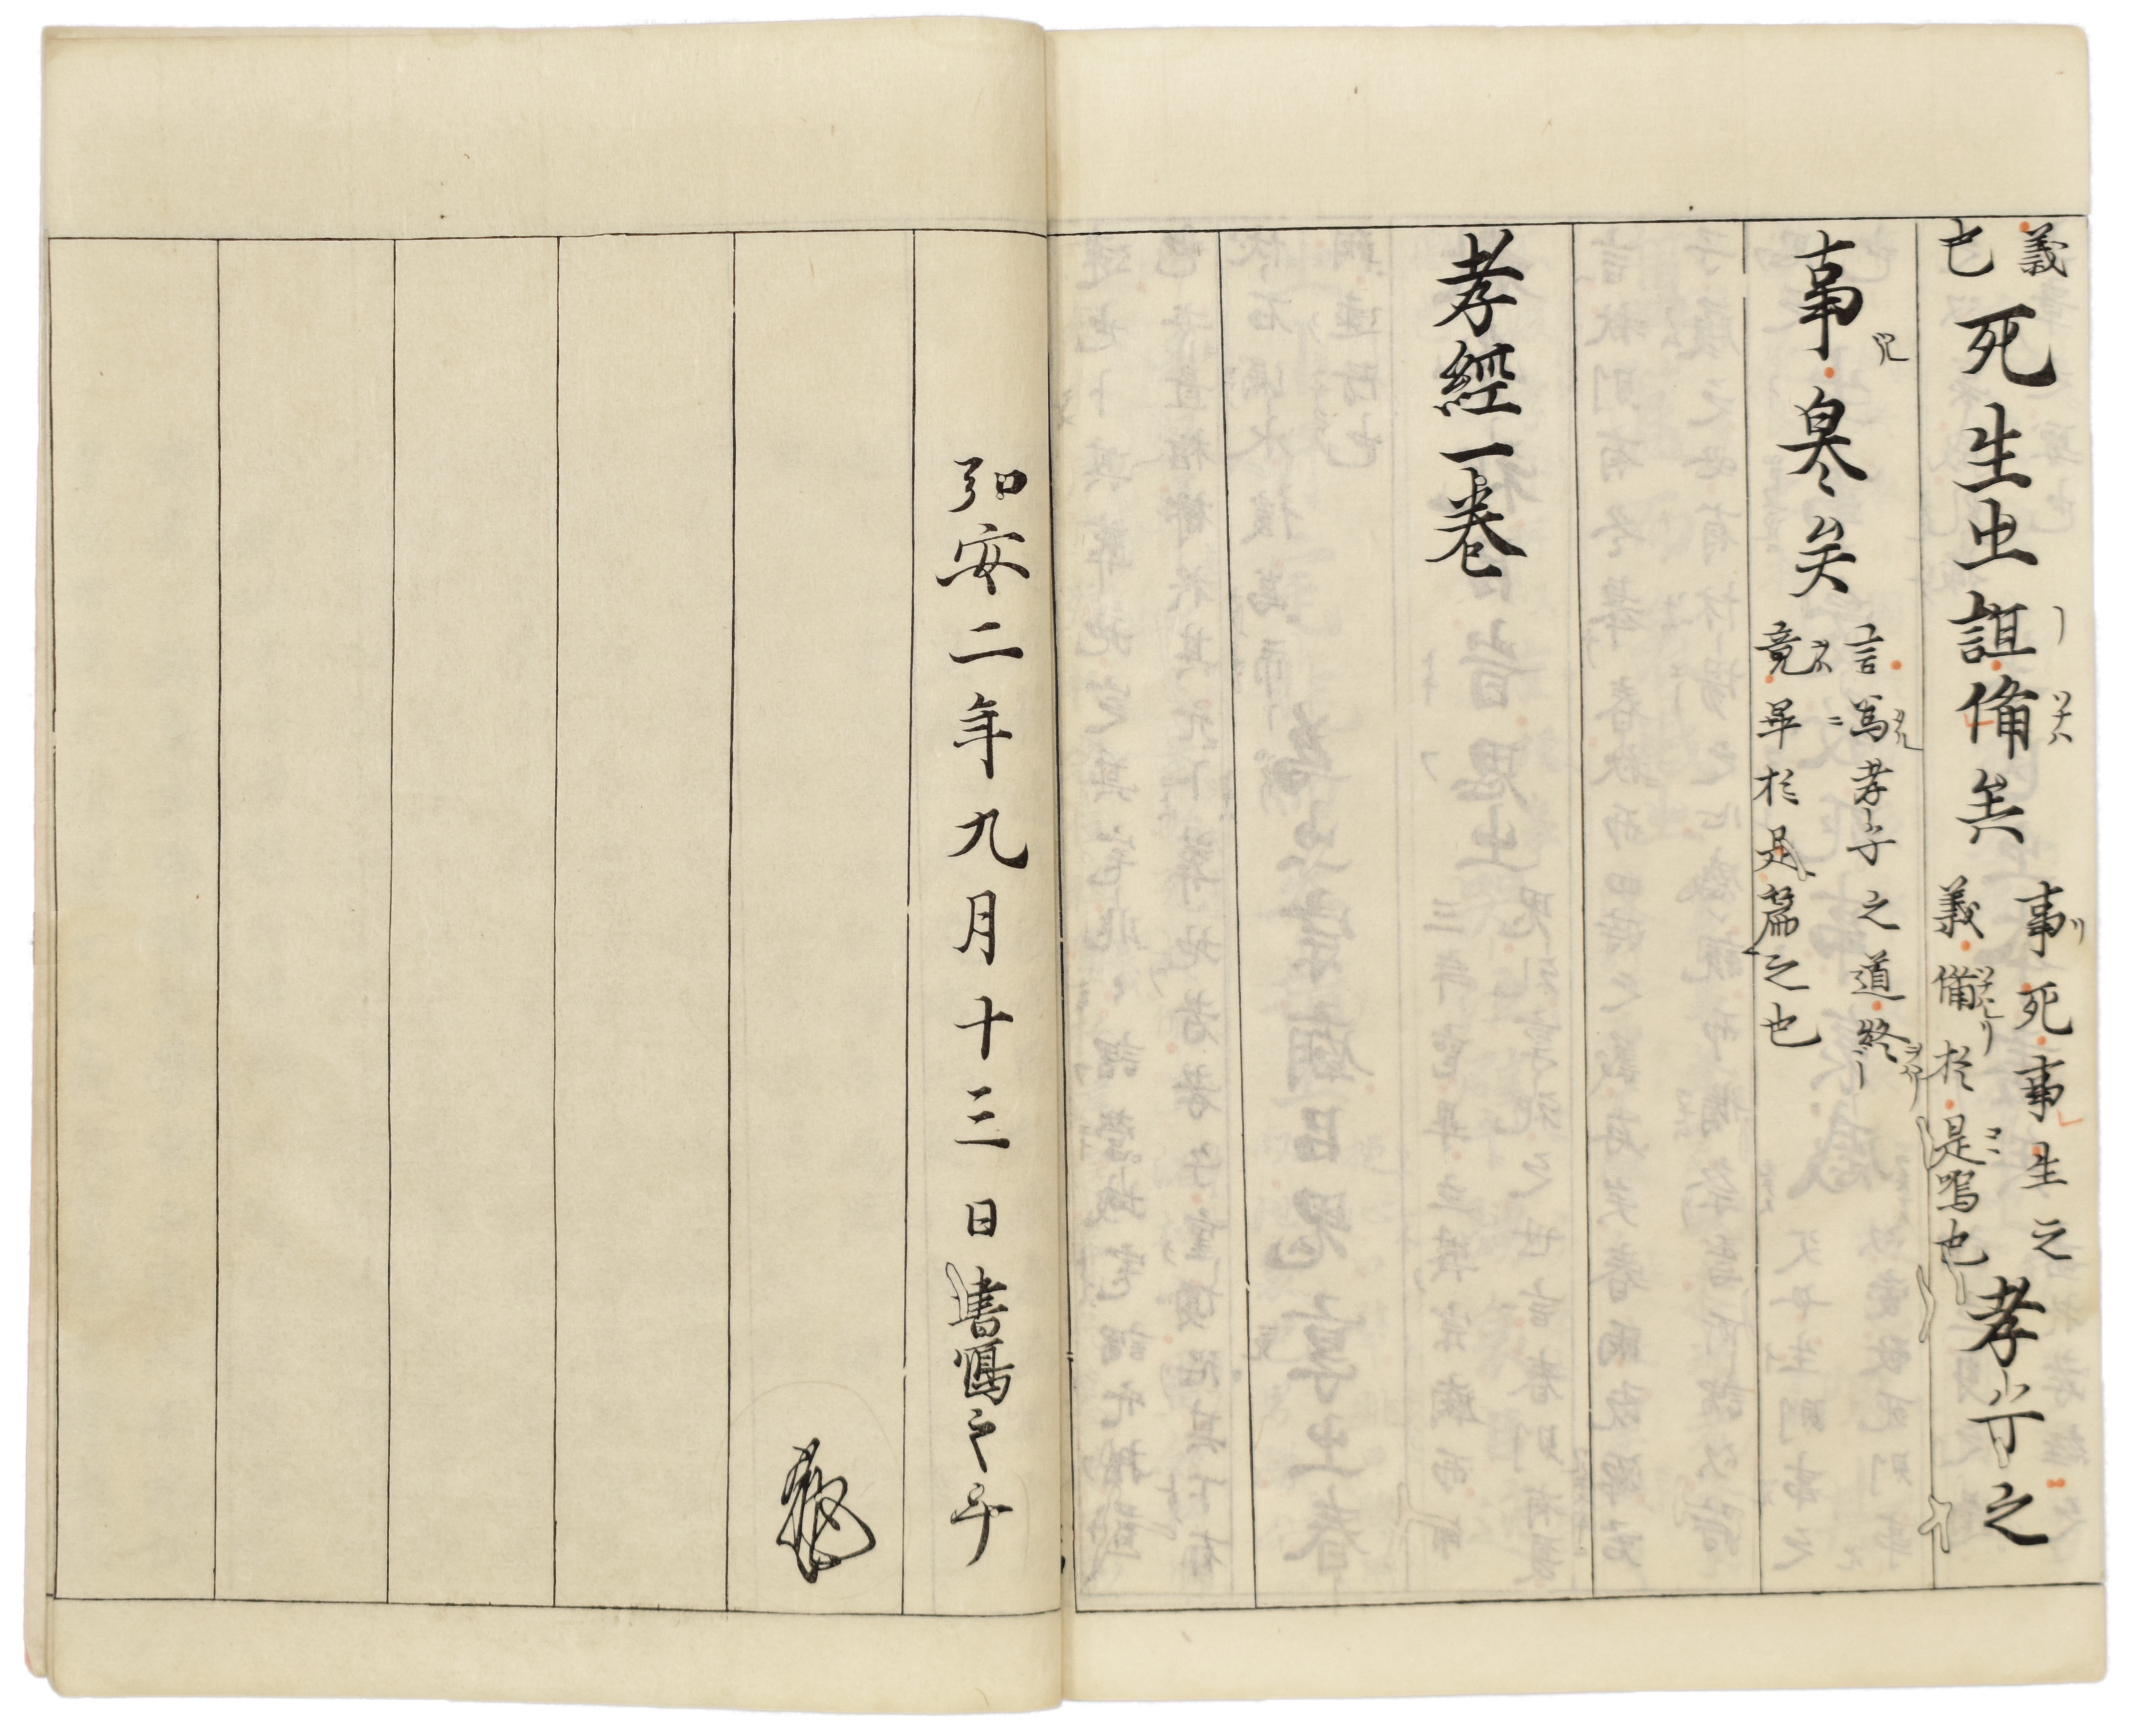 義
也
死生㞢誼備矣
事死事生之
義備於是焉也
孝子之
事終矣
言為孝子之道終
竟畢於是篇之也
孝經一卷
弘安二年九月十三日書寫之畢